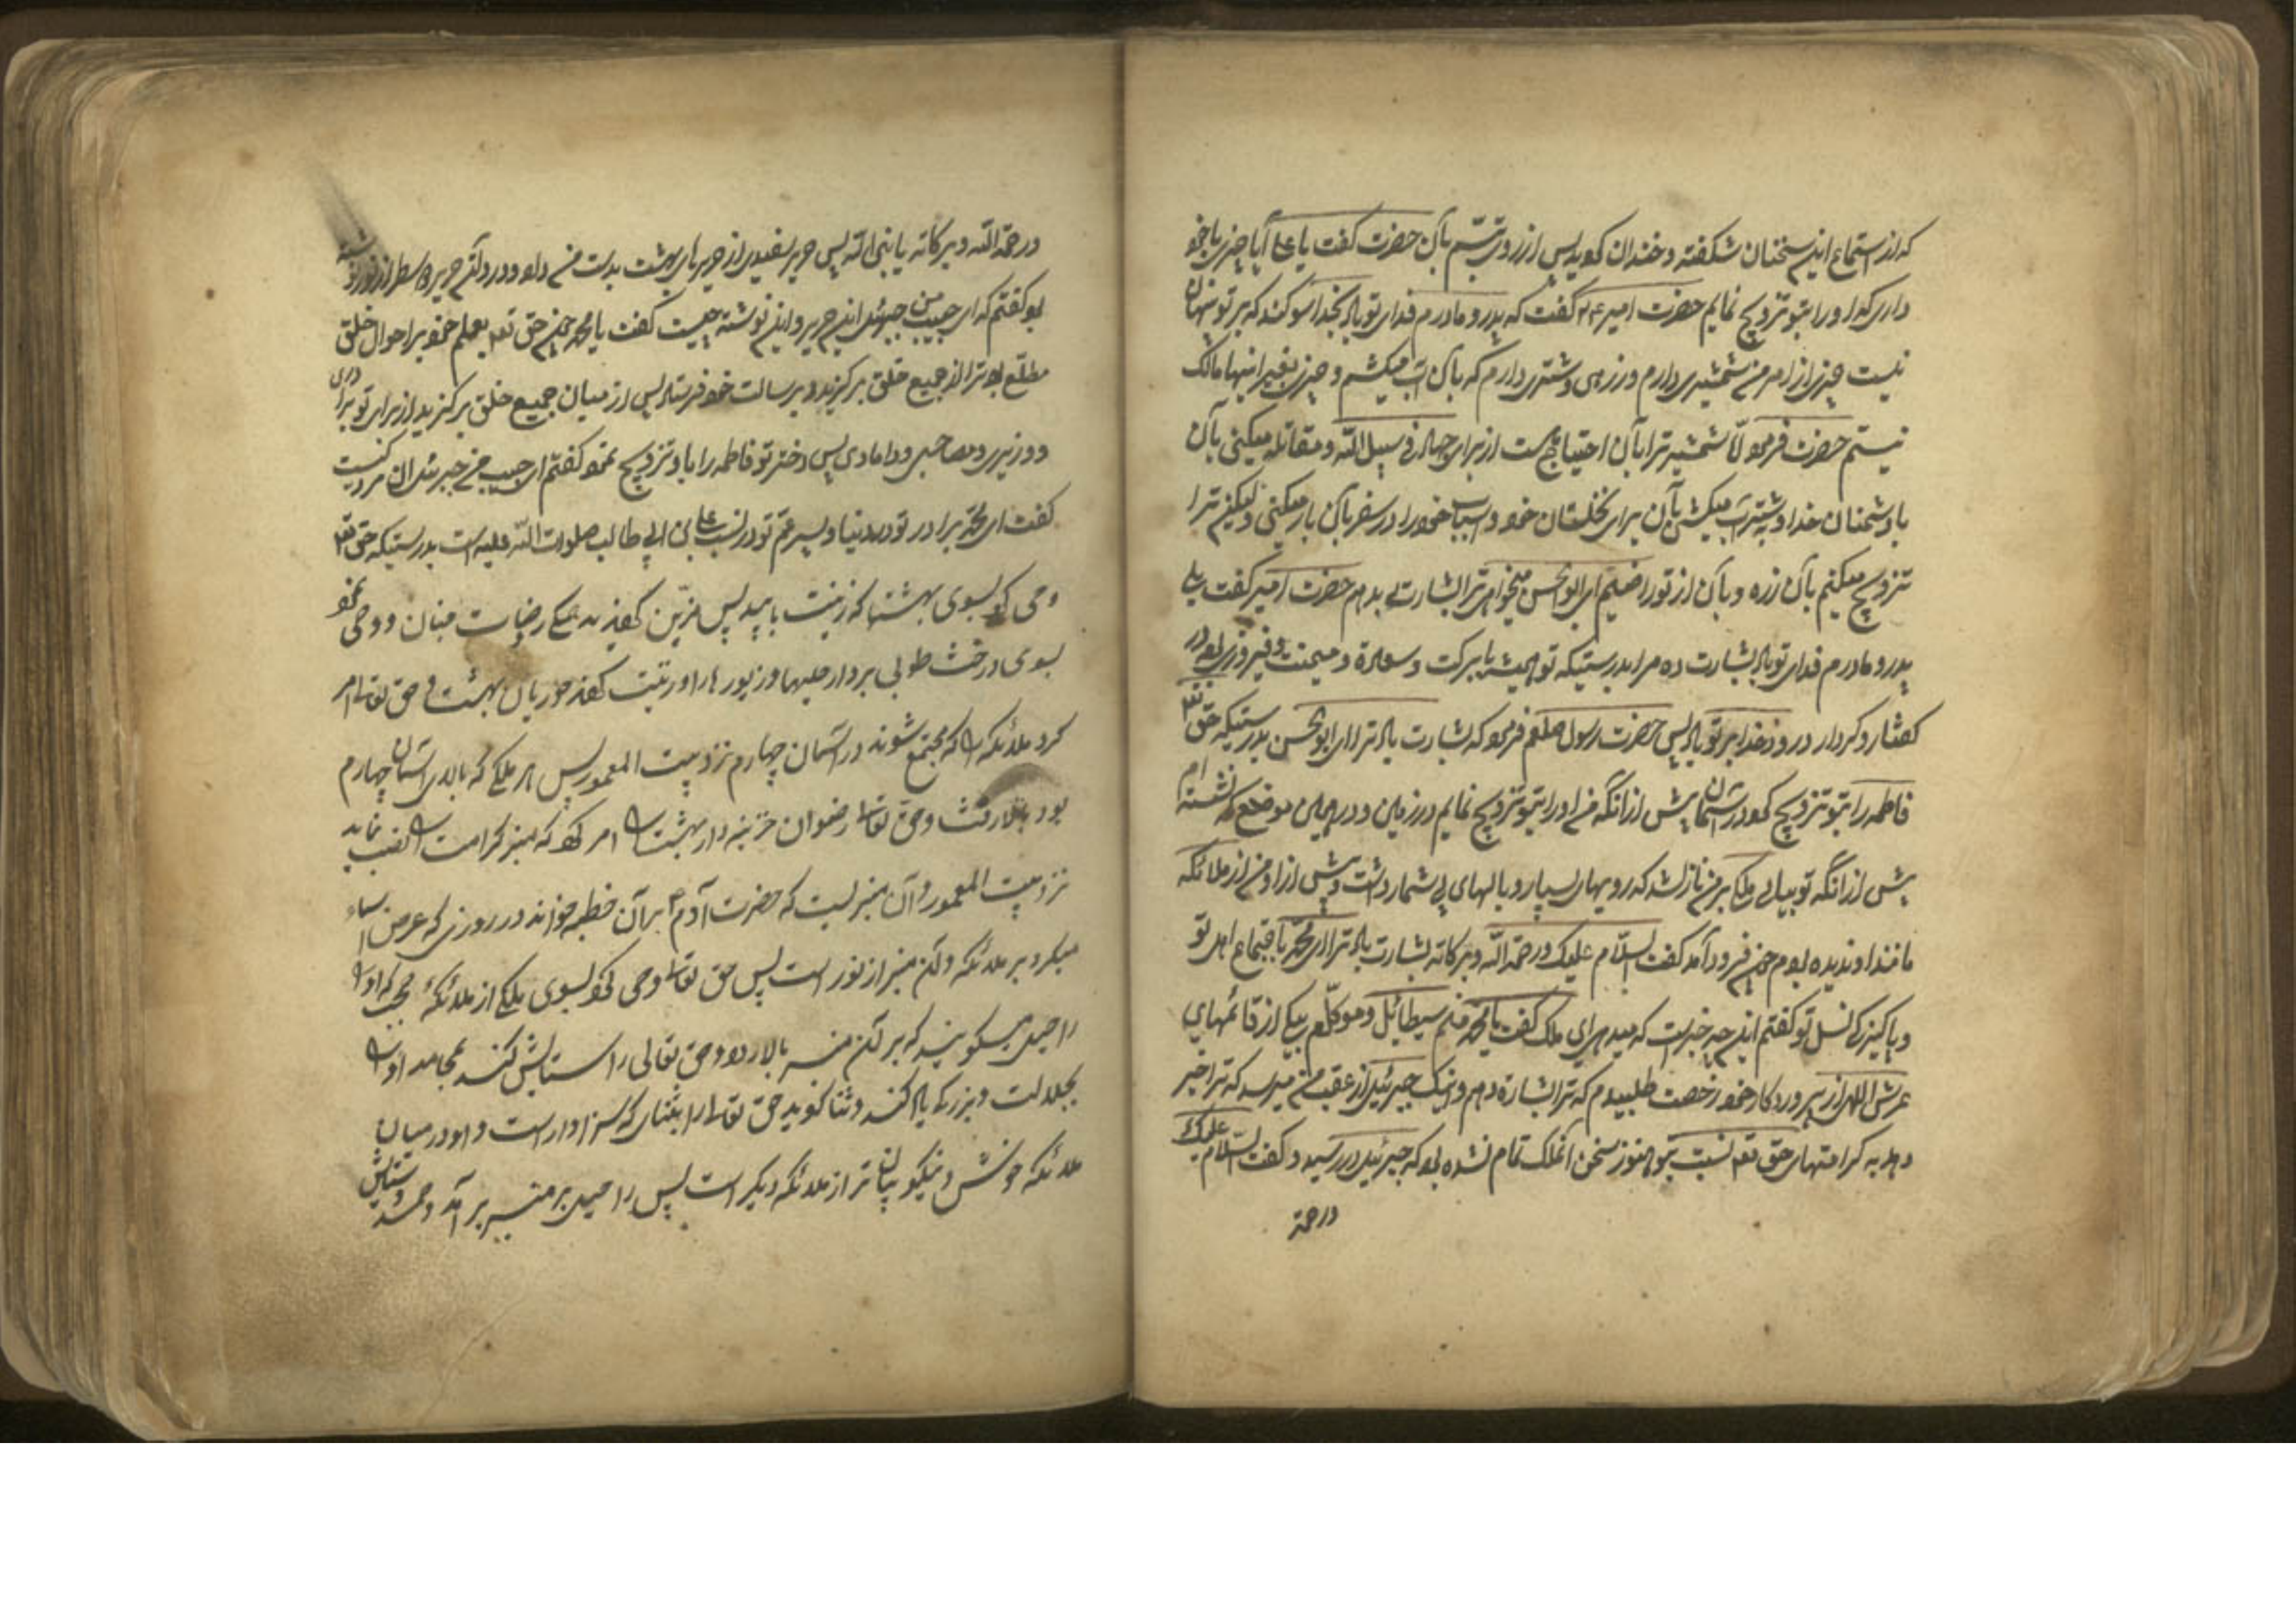 که از استماع این سخنان شکفته و خندان گردید پس از روی تبسم بآن حضرت گفت یا علی آیا چیزی با خود
داری که او را بتو تزویج نمایم حضرت امیر گفت که پدر و مادرم فدای تو باد بخدا سوگند که بر تو پنهان
نیست چیزی از امر من شمشیری دارم و زرهی و شتری دارم که بآن آب میکشم و چیزی بغیر اینها مالک
نیستم حضرت فرمود امّا شمشیر ترا بآن احتیاج هست از برای جهاد فی سبیل اللّه و مقاتله میکنی بآن
با دشمنان خدا و شتر آب میکشی بآن برای نخلستان خود و اسباب خود را در سفر بآن بار میکنی و لیکن ترا
تزویج میکنم بآن زره و بآن از تو راضیم ای ابو الحسن میخواهی ترا بشارت بدهم حضرت امیر گفت بلی
پدر و مادرم فدای تو باد بشارت ده مرا بدرستیکه تو همیشه با برکت و سعادة و میمنت و فیروزی بوده در
گفتار و کردار درود خدا بر تو باد پس حضرت رسول صلعم فرمود که بشارت باد ترا ای ابو الحسن بدرستیکه حق تعه
فاطمه را بتو تزویج کرد در آسمان پیش از آنکه من او را بتو تزویج نمایم در زمین و در همین موضع که نشسته ام
پیش از آنکه تو بیایی ملکی بر من نازل شد که رویهای بسیار و بالهای بی شمار داشت و پیش از او من از ملائکه
مانند او ندیده بودم چون فرود آمد گفت السلام علیک و رحمة اللّه و برکاته بشارت باد ترا ای محمّد باجتماع اهل تو
و پاکیزگی نسل تو گفتم این چه خبرست که میدهی ای ملک گفت یا محمد منم سیطائیل و موکلّم بیکی از قائمهای
عرش اللهی از پروردگار خود رخصت طلبیدم که ترا بشارة دهم و اینک جبرئیل از عقب من میرسد که ترا خبر
دهد به کرامتهای حق تعه نسبت بتو هنوز سخن آنملک تمام نشده بود که جبرئیل در رسید و گفت السّلام علیک
و رحمة
و رحمة اللّه و برکاته یا نبی اللّه پس حریر سفیدی از حریرهای بهشت بدست من داد و در آن حریر دو سطر از نور نوشته
بود گفتم که ای حبیب من جبرئیل این حریر و این نوشته چیست گفت یا محمد چون حق تعه بعلم خود بر احوال خلق
مطلّع بود ترا از جمیع خلق برگزید و برسالت خود فرستاد پس از میان جمیع خلق برگزید از برای تو برادری
و وزیری و مصاحبی و دامادی پس دختر تو فاطمه را باو تزویج نمود گفتم ای حبیب من جبرئیل آن مرد کیست
گفت ای محمّد برادر تو در دنیا و پسر عمّ تو در نسب علی بن ابی طالب صلوات اللّه علیه است بدرستیکه حق تعه
وحی کرد بسوی بهشتها که زینت یابید پس مزیّن کردند همگی رضیات جنان و وحی نمود
بسوی درخت طوبی بردار حلیها و زیورها را و زینت کردند حوریان بهشت و حق تعالی امر
کرد ملائکه را که مجتمع شوند در آسمان چهارم نزد بیت المعمور پس هر ملکی که بالای آسمان چهارم
بود و حق تعالی رضوان خزینه دار بهشت را امر کرد که منبر کرامت را نصب نماید
نزد بیت المعمور و آن منبریست که حضرت آدم بر آن خطبه خواند در روزی که عرض اسماء
میکرد بر ملائکه و آن منبر از نور است پس حق تعالی وحی کرد بسوی ملکی از ملائکهٔ حجب که او را
راحیل میگویند که بر آن منبر بالا رود و حق تعالی را ستایش کند بمحامد او را
بجلالت و بزرگی یاد کند و ثنا گوید حق تعالی را بثنای که سزاوار است و او در میان
ملائکه خوش و نیکو بیان تر از ملائکه دیگر است پس راحیل بر منبر بر آمد و حمد و ستایش